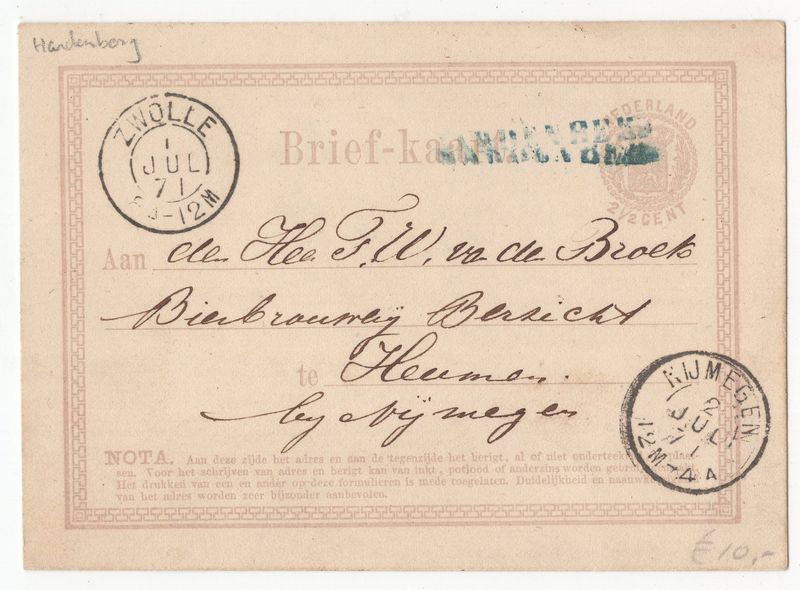 Hardenberg
ZWOLLE
1
JUL
71
-12M
Brief-kaart
NEDERLAND
2½ CENT
Aan den Heer F. W. van den Broek
Bierbrouwerij
te Heumen.
by Nijmegen
NIJMEGEN
2
JUL
71
12M-4A
NOTA. Aan deze zijde het adres en aan de tegenzijde het berigt, al of niet onderteekend,
sen. Voor het schrijven van adres en berigt kan van inkt, potlood of anderzins worden
Het drukken van een en ander op deze formulieren is mede toegelaten. Duidelijkheid en
van het adres worden zeer bijzonder aanbevolen.
€ 10,-